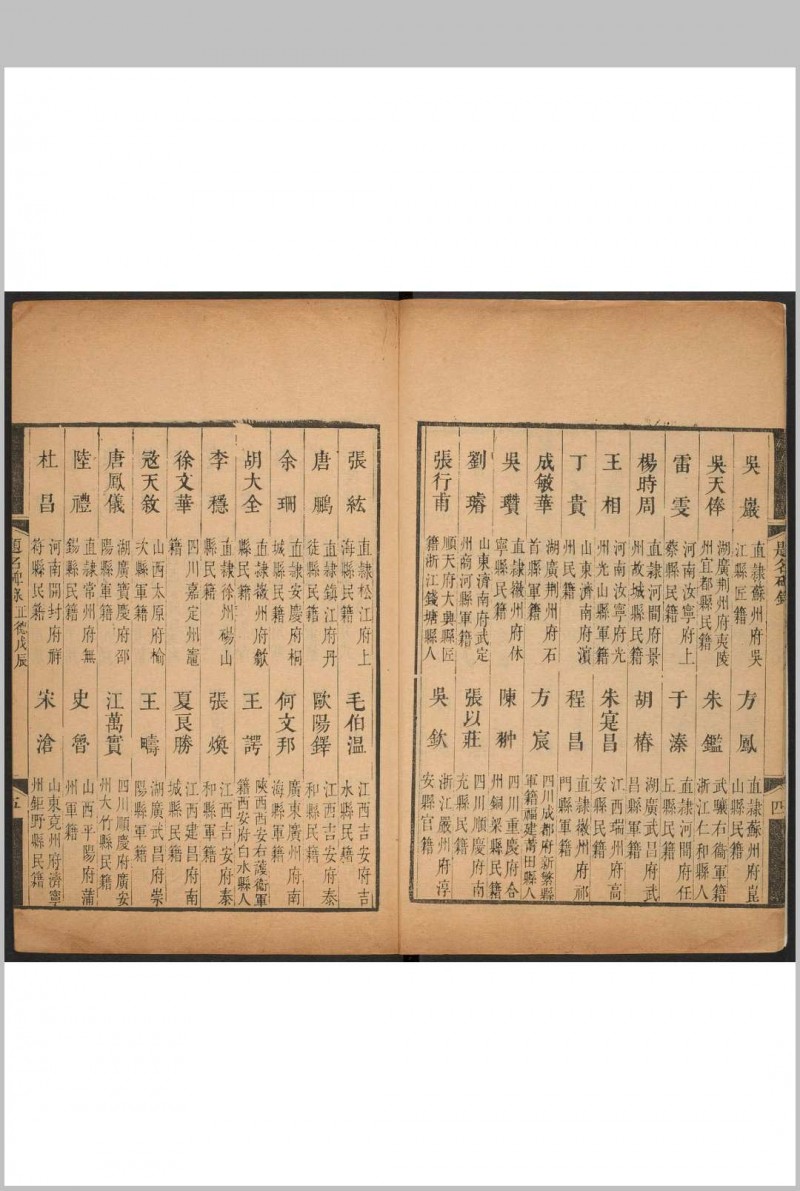 題名碑錄
四
吳巖 直隷蘇州府吳江縣匠籍 方鳳 直隷蘇州府崑山縣民籍
吳天俸 湖廣荆州府夷陵州宜都縣民籍 朱鑑 武驤右衛軍籍浙江仁和縣人
雷雯 河南汝寧府上蔡縣民籍 于溱 直隷河間府任丘縣民籍
楊時周 直隷河間府景州故城縣民籍 胡椿 湖廣武昌府武昌縣軍籍
王相 河南汝寧府光州光山縣軍籍 朱寔昌 江西瑞州府高安縣民籍
丁貴 山東濟南府濱州民籍 程昌 直隷徽州府祁門縣軍籍
成敏華 湖廣荆州府石首縣軍籍 方宸 四川成都府新繁縣軍籍福建莆田縣人
吳瓚 直隷徽州府休寧縣民籍 陳翀 四川重慶府合州銅梁縣民籍
劉璿 山東濟南府武定州商河縣軍籍 張以莊 四川順慶府南充縣民籍
張行甫 順天府大興縣匠籍浙江錢塘縣人 吳欽 浙江嚴州府淳安縣官籍
張紘 直隷松江府上海縣民籍 毛伯溫 江西吉安府吉水縣民籍
唐鵬 直隷鎮江府丹徒縣民籍 歐陽鐸 江西吉安府泰和縣民籍
余珊 直隷安慶府桐城縣民籍 何文邦 廣東廣州府南海縣軍籍
胡大全 直隷徽州府歙縣民籍 王諤 陝西西安右護衛軍籍西安府白水縣人
李穩 直隷徐州碭山縣民籍 張煥 江西吉安府泰和縣軍籍
徐文華 四川嘉定州竈籍 夏良勝 江西建昌府南城縣民籍
寇天敘 山西太原府榆次縣軍籍 王疇 湖廣武昌府崇陽縣軍籍
唐鳳儀 湖廣寶慶府邵陽縣軍籍 江萬實 四川順慶府廣安州大竹縣民籍
陸禮 直隷常州府無錫縣民籍 史魯 山西平陽府蒲州軍籍
杜昌 河南開封府祥符縣民籍 宋滄 山東兗州府濟寧州鉅野縣民籍
題名碑錄 正德戊辰
五